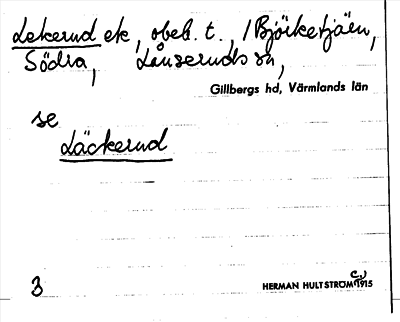 Lekerud ek, obeb. t., /Björketjärn,
Södra, Långseruds sn,
Gillbergs hd, Värmlands län
se
Läckerud
3
HERMAN HULTSTRÖM 1915